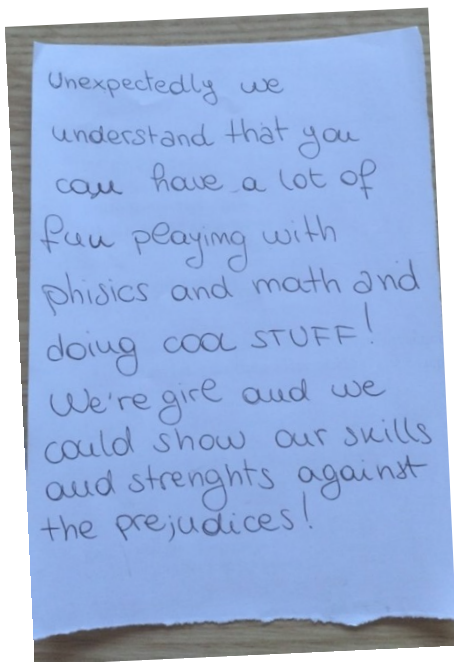 Unexpectedly we
understand that you
can have a lot of
fun playing with
phisics and math and
doing cool STUFF!
We're girl and we
could show our skills
and strenghts against
the prejudices!